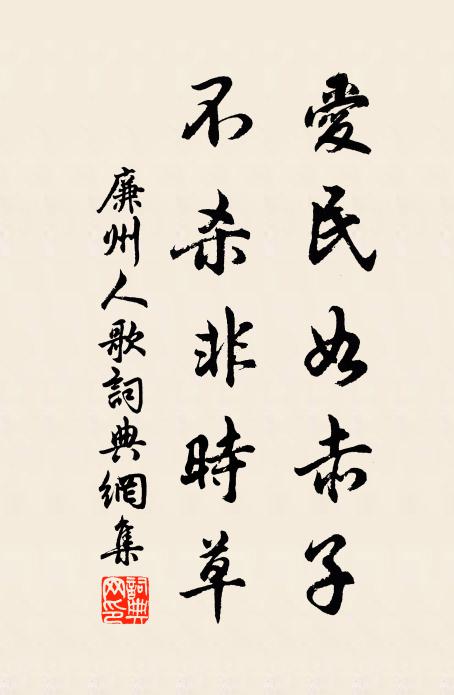 愛民如赤子
不杀非時草
廉州人歌詞典網集
詞典
网印